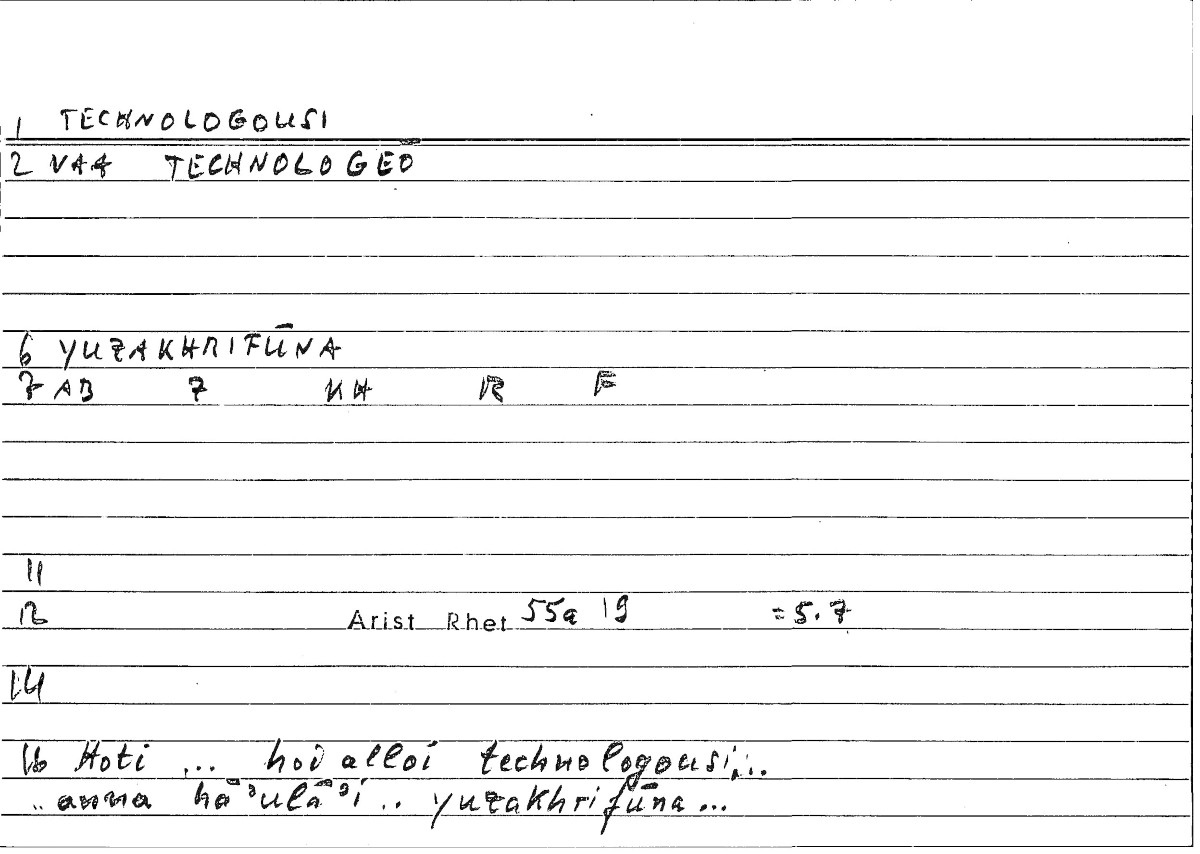 1 TECHNOLOGOUSI
2 VAA TECHNOLOGEŌ
6 YUZAKHRIFŪNA
7 AB Z KH R F
11
12 Arist Rhet 55a 19 =5.7
14
16 Hoti ... hoi alloi technologousi...
.. anna hāʾulāʾi .. yuzakhrifūna ...